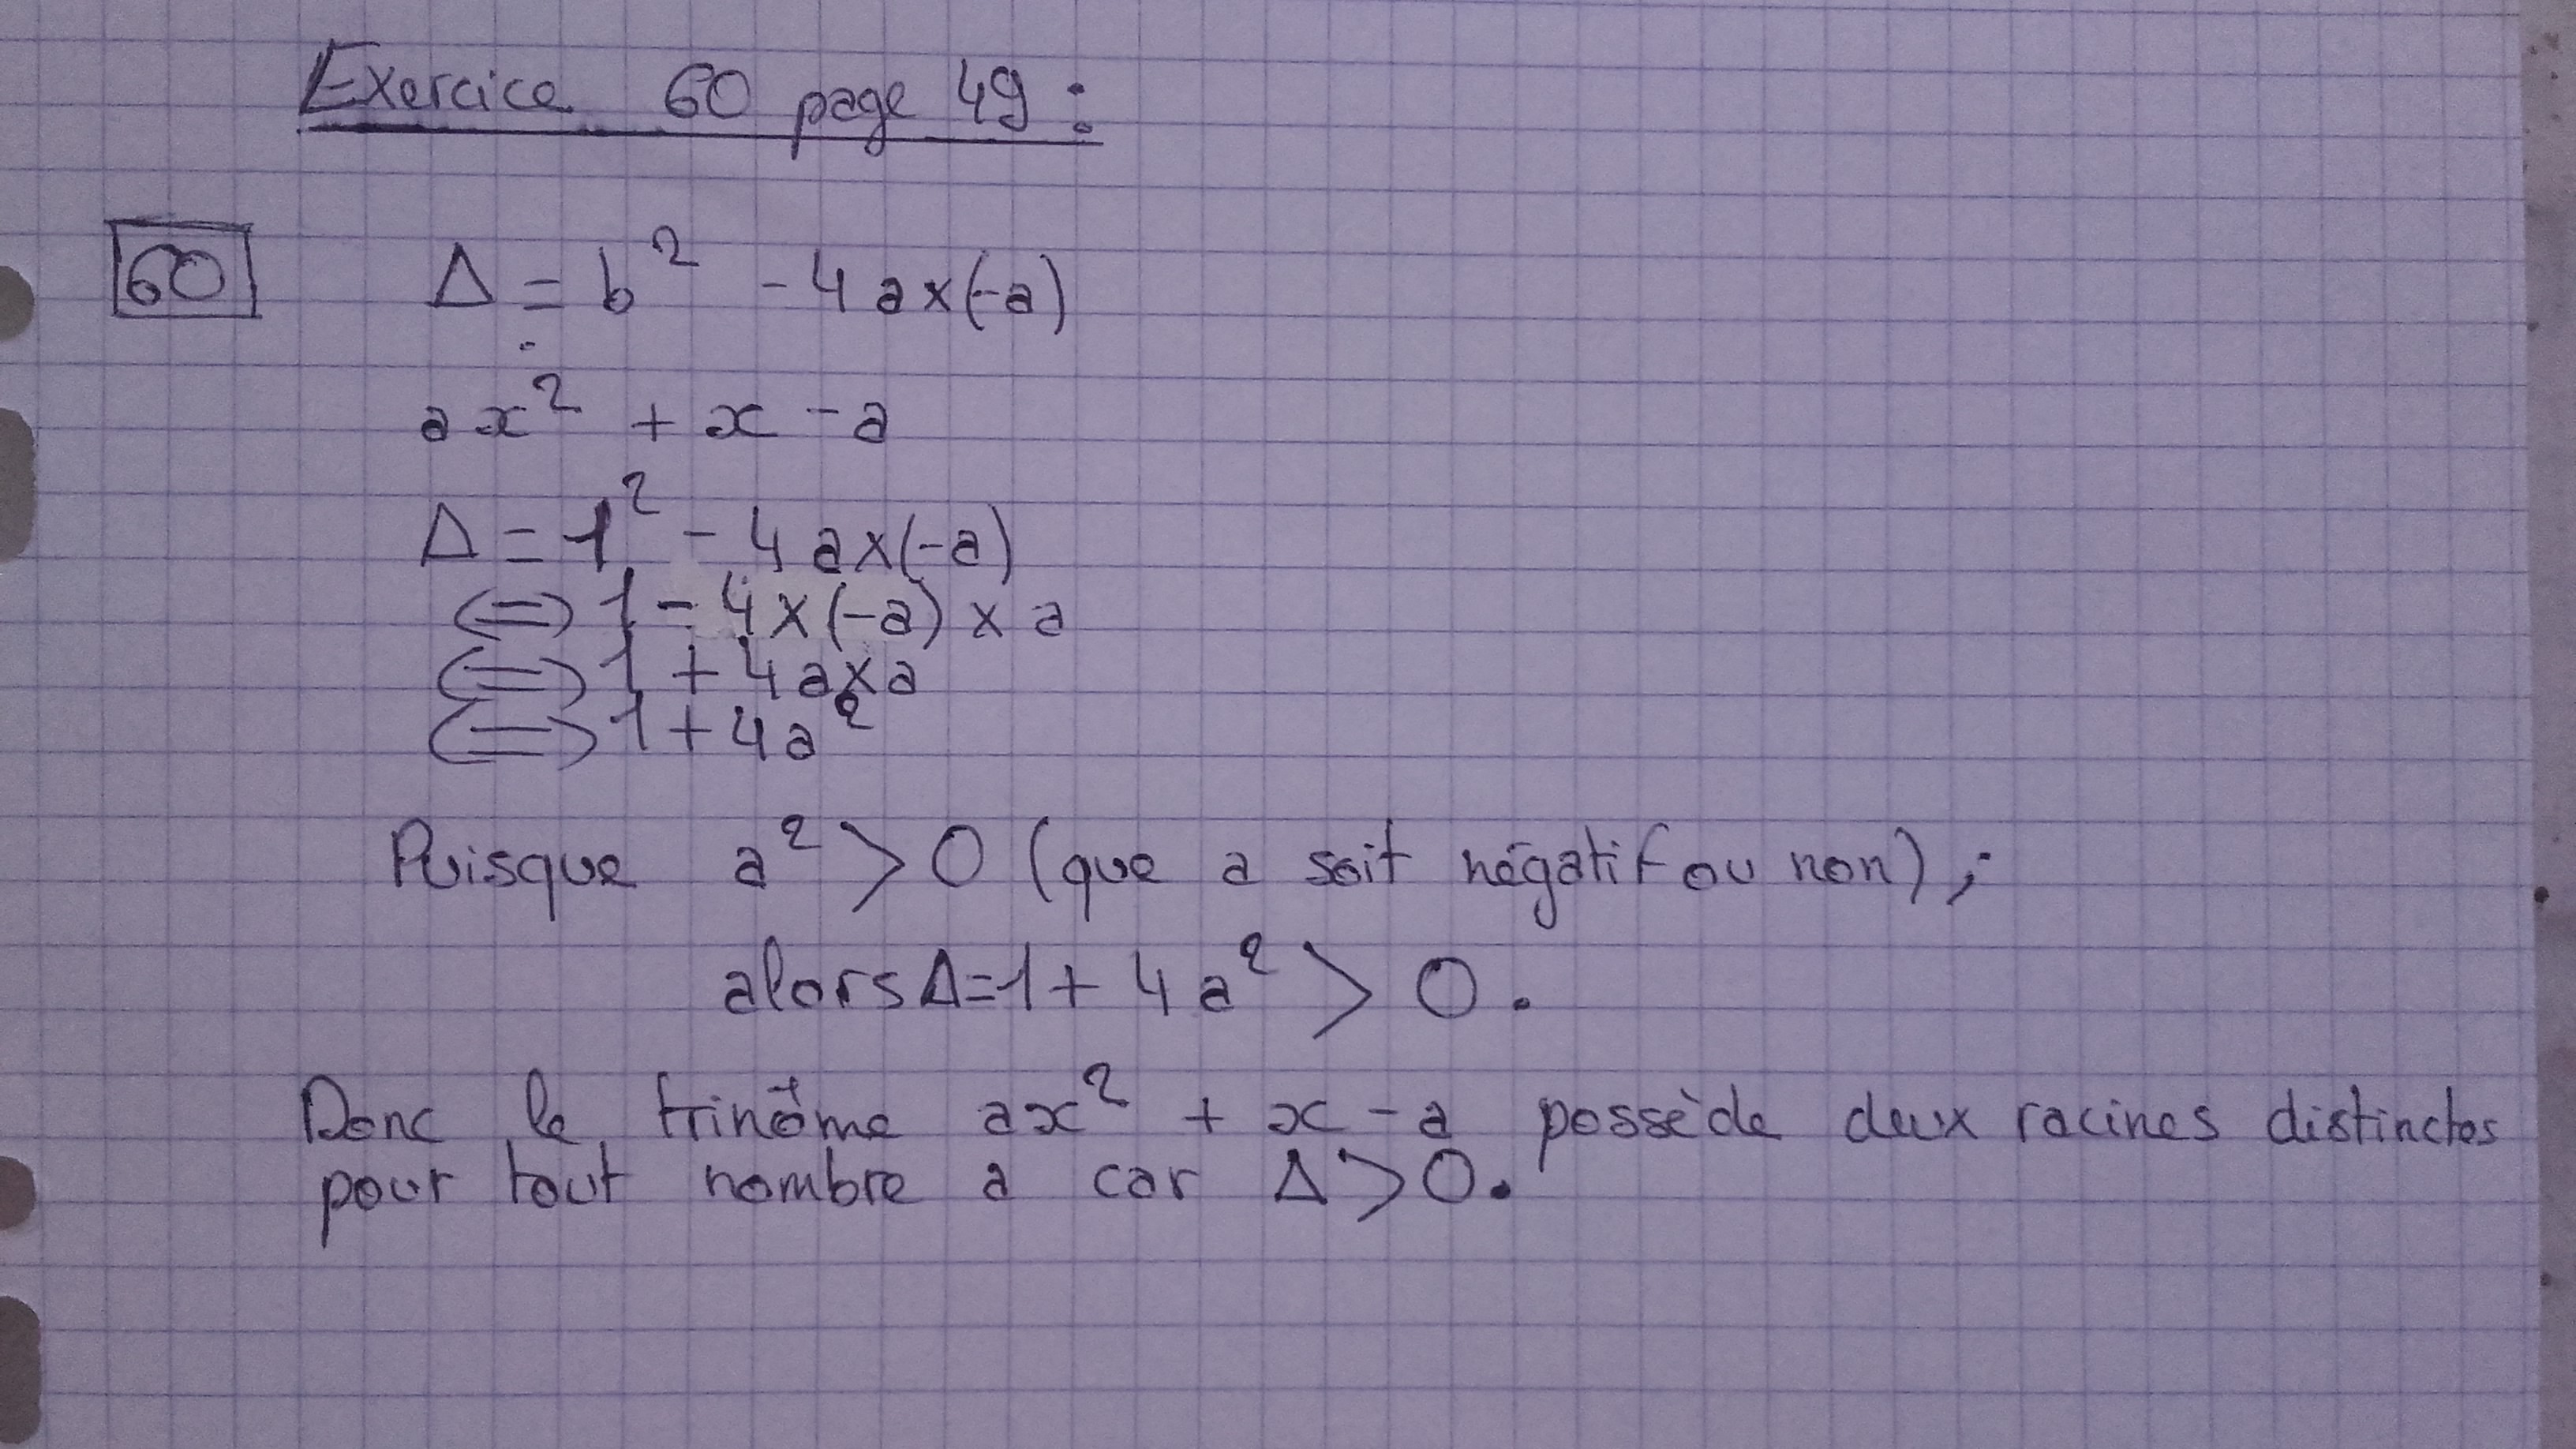 Exercice 60 page 49 :
60 Δ = b² - 4a×(-a)
ax² + x - a
Δ = 1² - 4a×(-a)
⟺ 1 - 4×(-a) × a
⟺ 1 + 4a×a
⟺ 1 + 4a²
Puisque a² > 0 (que a soit négatif ou non),
alors Δ=1 + 4a² > 0.
Donc le trinôme ax² + x - a possède deux racines distinctes
pour tout nombre a car Δ > 0.